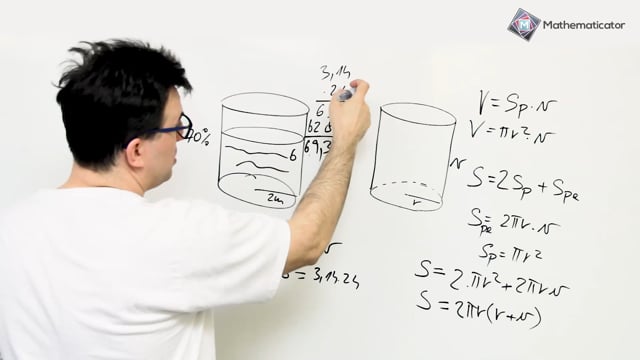 Mathematicator
3,14
69,
6
2m
= 3,14.24
r
v
V = Sp · v
V = πr² · v
S = 2Sp + Spe
Spe = 2πr · v
Sp = πr²
S = 2 · πr² + 2πrv
S = 2πr(r+v)